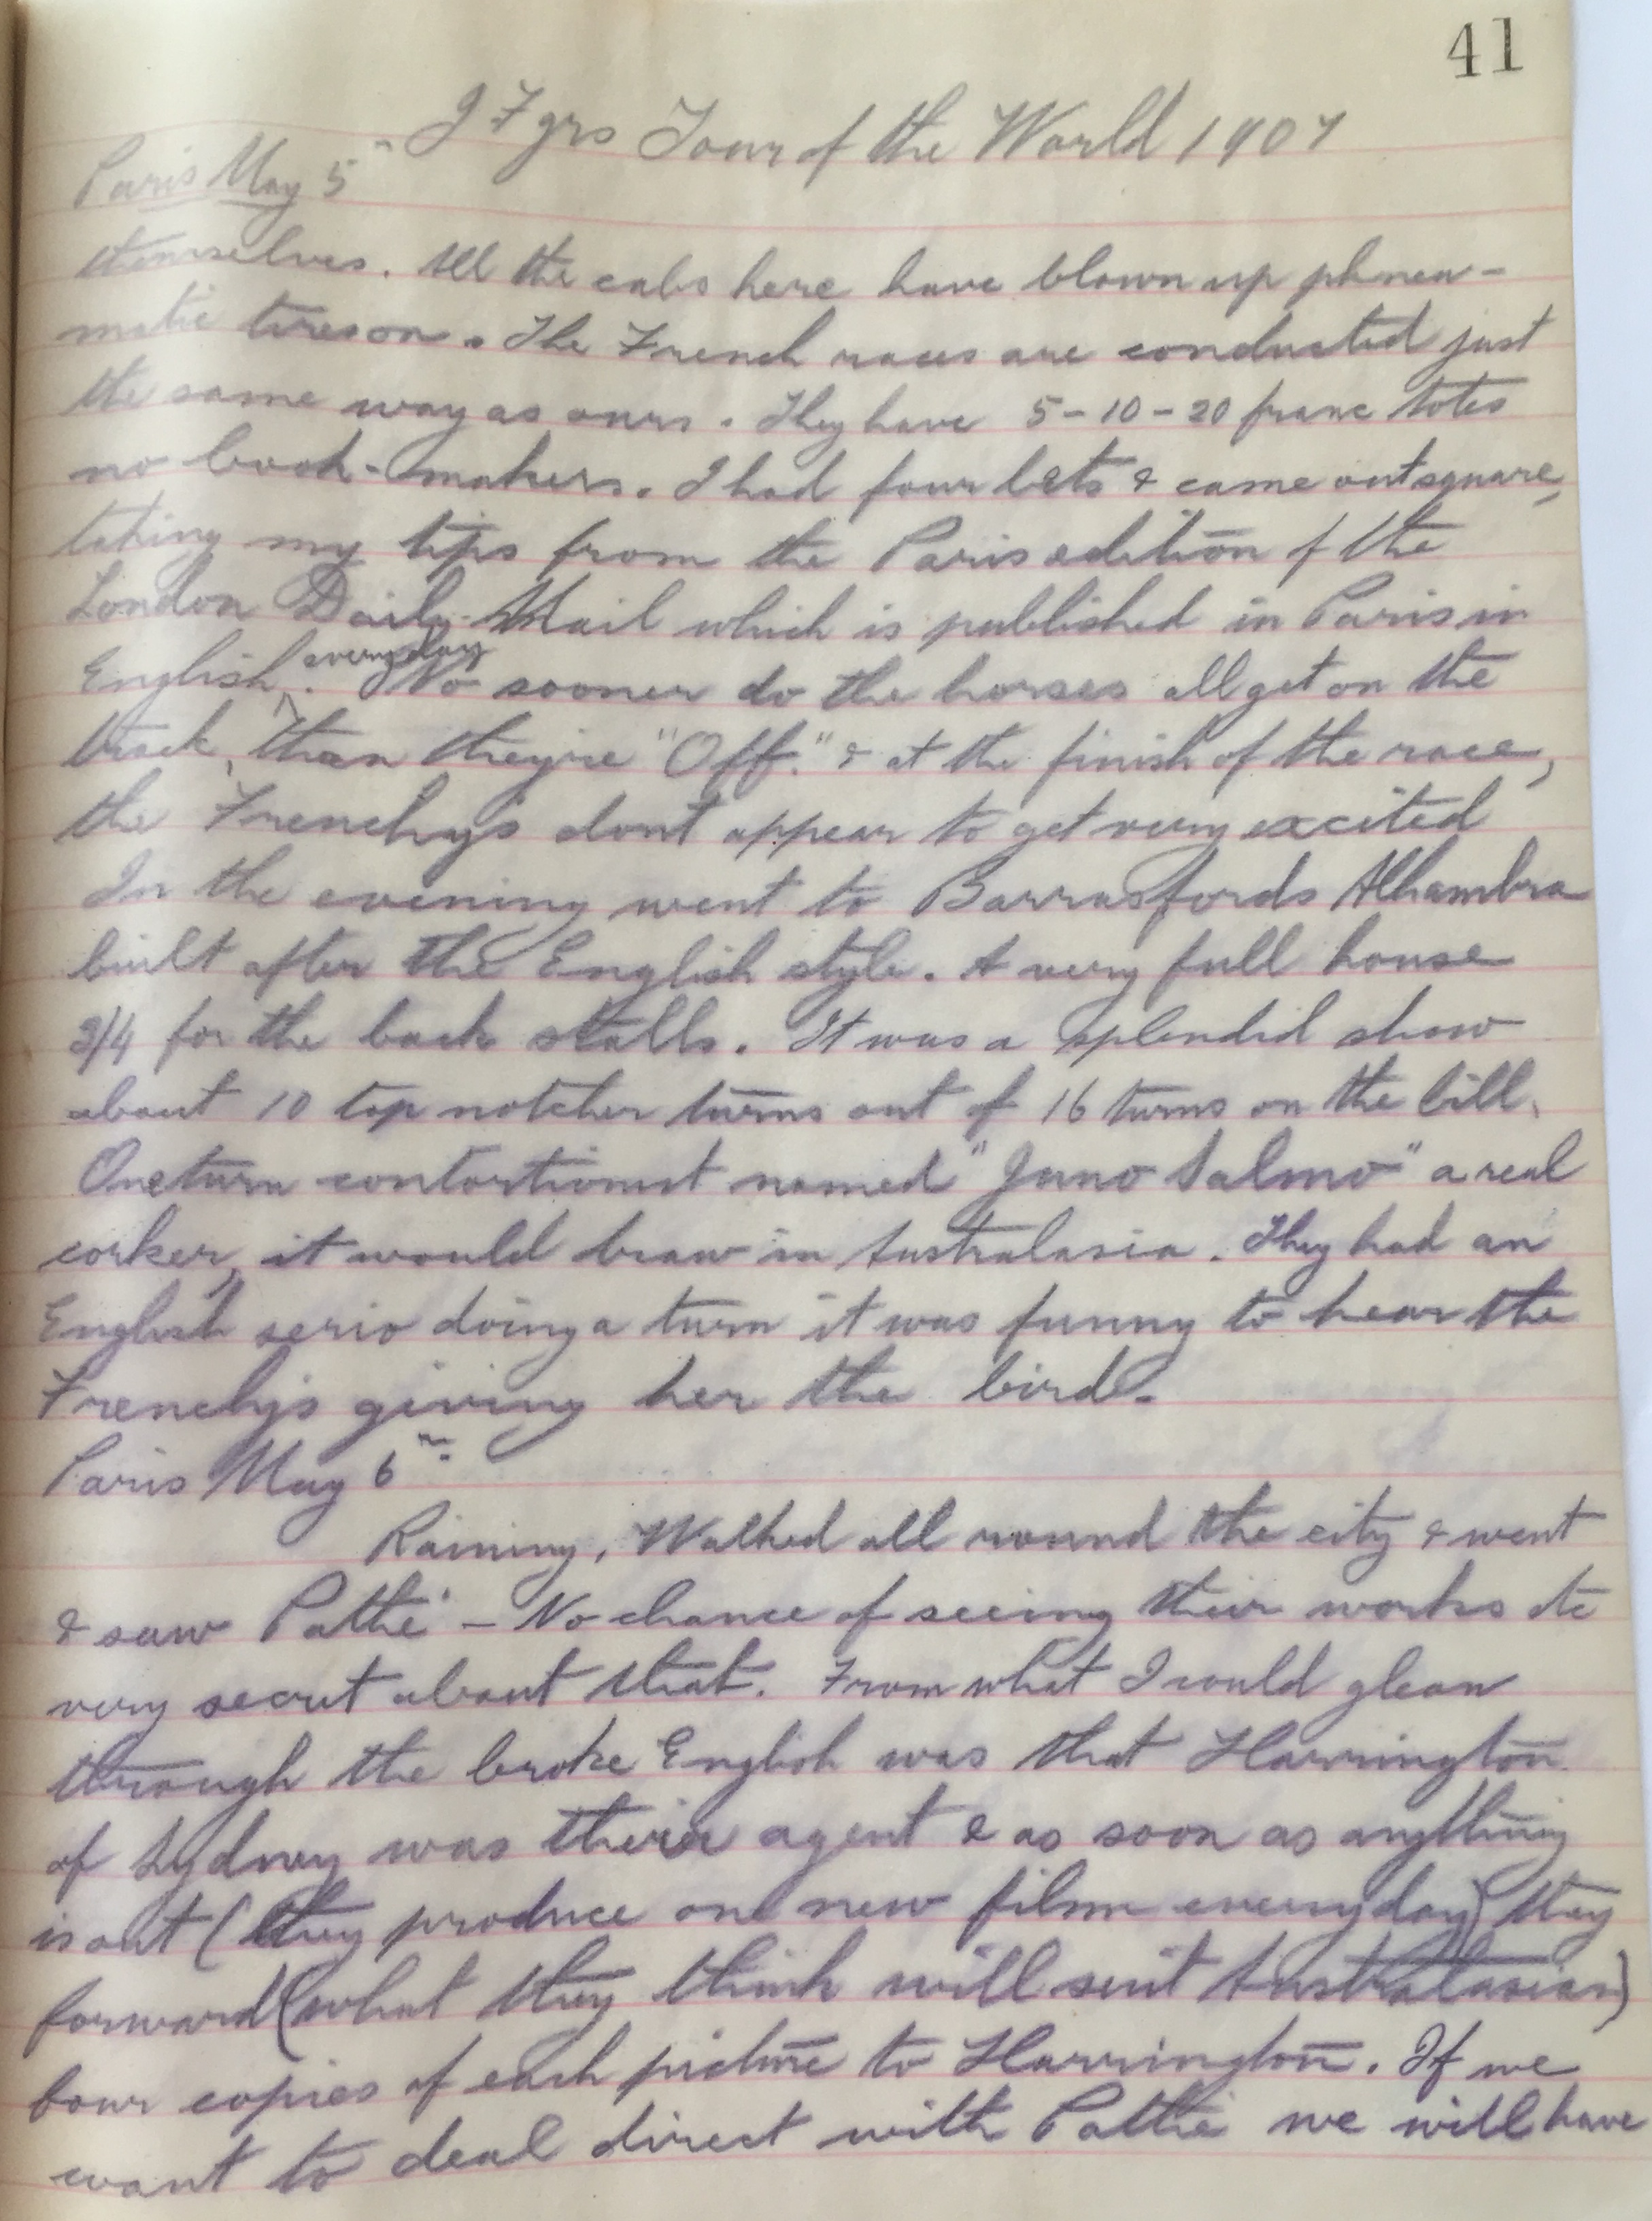 41
J F grs Tour of the World 1907
Paris May 5th
themselves. All the cabs here have blown up phneu-
matic tires on. The French races are conducted just
the same way as ours. They have 5-10-20 franc totes
no book-makers. I had four bets & came out square,
taking my tips from the Paris edition of the
London Daily Mail which is published in Paris in
English everyday. No sooner do the horses all get on the
track, than they're "Off." & at the finish of the race,
the Frenchys dont appear to get very excited
In the evening went to Barrasfords Alhambra
built after the English style. A very full house
3/4 for the back stalls. It was a splendid show
about 10 top notcher turns out of 16 turns on the bill.
One turn contortionist named "Juno Salmo" a real
corker, it would draw in Australasia. They had an
English serio doing a turn it was funny to hear the
Frenchys giving her the bird.
Paris May 6th.
Raining, Walked all round the city & went
& saw Pathé - No chance of seeing their works etc
very secret about that. From what I could glean
through the broke English was that Harrington
of Sydney was their agent & as soon as anything
is out (they produce one new film everyday) they
forward (what they think will suit Australasian)
four copies of each picture to Harrington. If we
want to deal direct with Pathé we will have